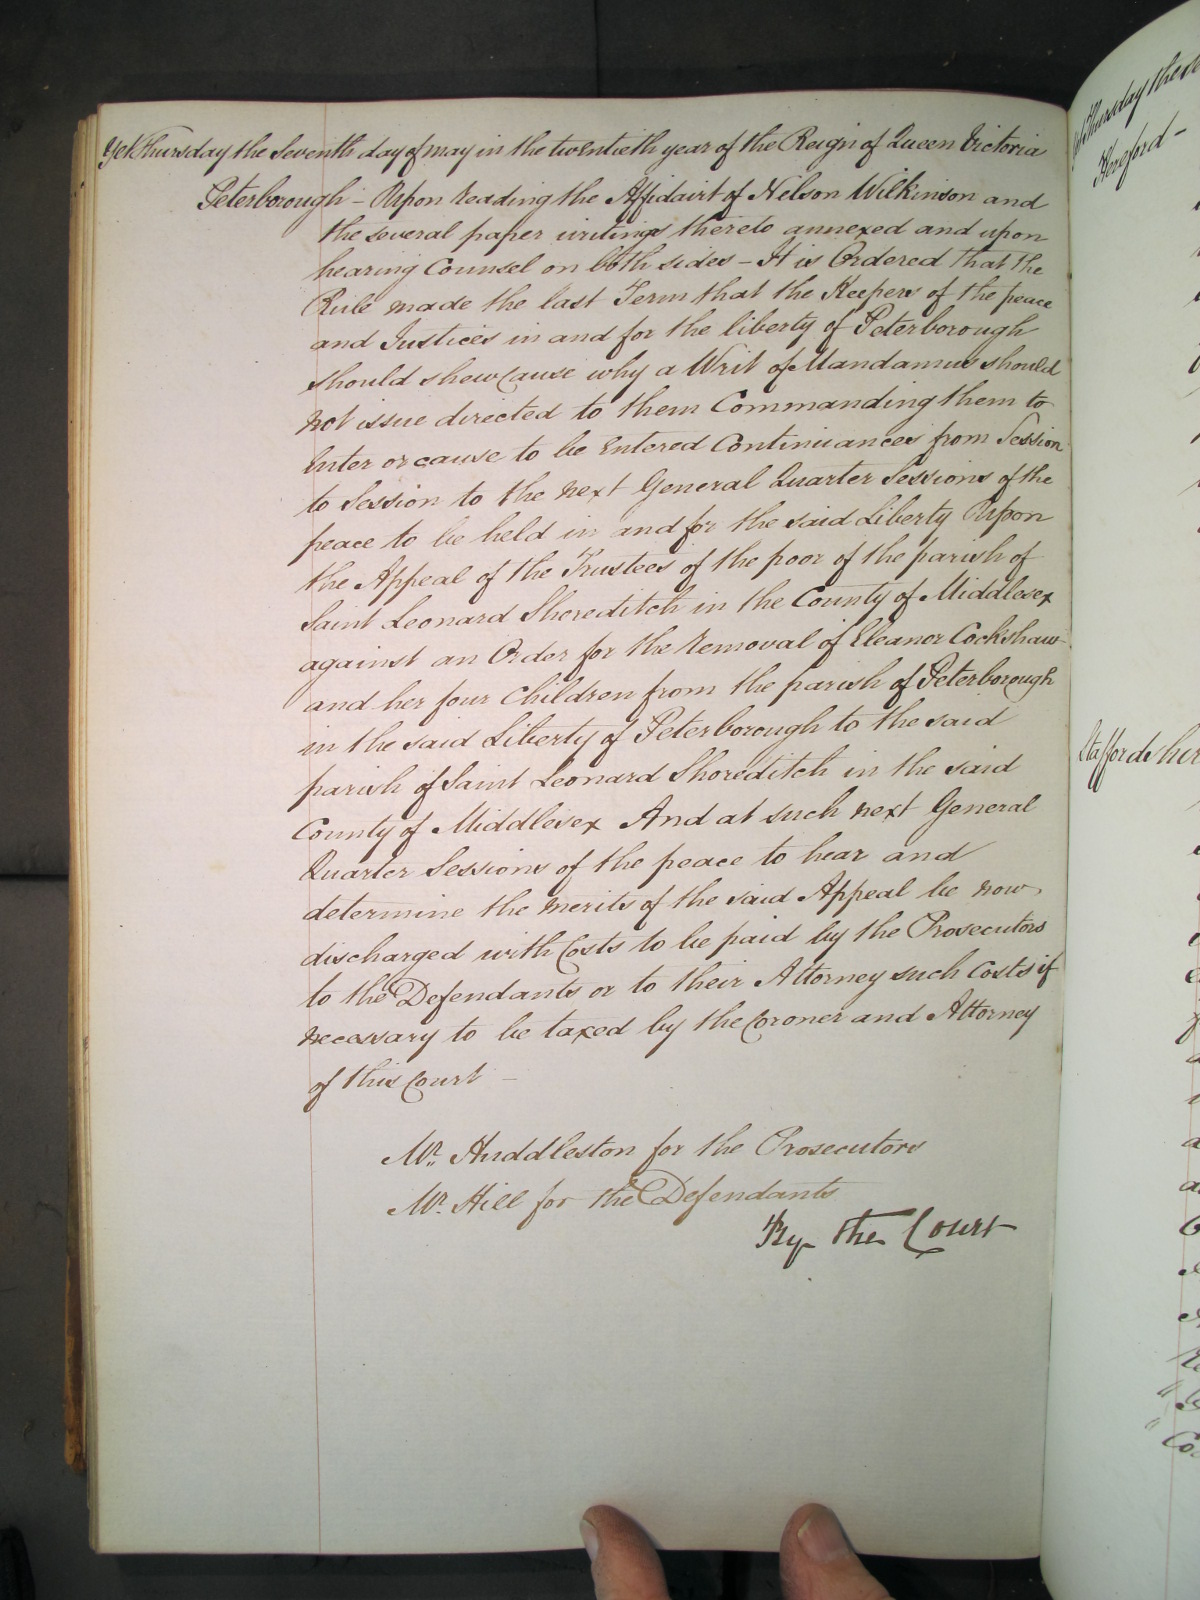 Yet Thursday the Seventh day of may in the twentieth year of the Reign of Queen Victoria
Peterborough - Upon reading the Affidavit of Nelson Wilkinson and
the several paper writings thereto annexed and upon
hearing Counsel on both sides - It is Ordered that the
Rule made the last Term that the Keepers of the peace
and Justices in and for the liberty of Peterborough
should shew Cause why a Writ of Mandamus should
not issue directed to them Commanding them to
enter or cause to be entered Continuances from Session
to Session to the next General Quarter Sessions of the
peace to be held in and for the said Liberty Upon
the Appeal of the Trustees of the poor of the parish of
Saint Leonard Shoreditch in the County of Middlesex
against an Order for the removal of Eleanor Cockshaw
and her four Children from the parish of Peterborough
in the said Liberty of Peterborough to the said
parish of Saint Leonard Shoreditch in the said
County of Middlesex And at such next General
Quarter Sessions of the peace to hear and
determine the merits of the said Appeal be now
discharged with Costs to be paid by the Prosecutors
to the Defendants or to their Attorney such Costs if
necessary to be taxed by the Coroner and Attorney
of this Court -
Mr. Huddleston for the Prosecutors
Mr. Hill for the Defendants
By the Court
Thursday the
Hereford -
Staffordshire